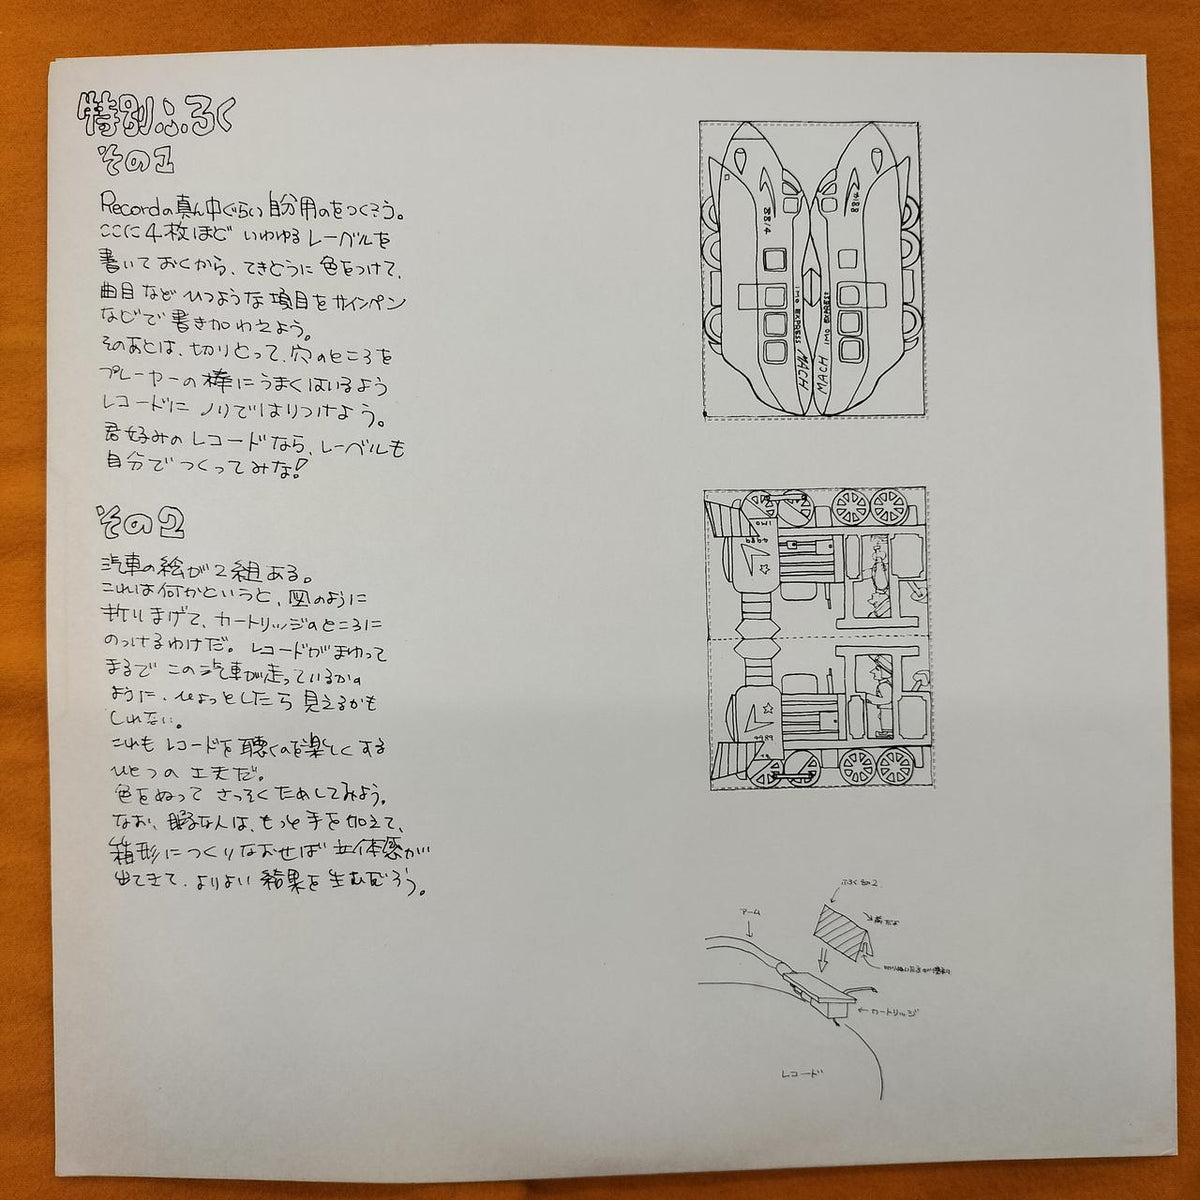 特別ふろく
その1
Recordの真ん中ぐらい自分用のをつくろう。
ここに4枚ほど いわゆるレーベルを
書いておくから、てきとうに色をつけて、
曲目などひつような項目をサインペン
などで書き加わえよう。
そのあとは、切りとって、穴のところを
プレーヤーの棒にうまくはいるよう
レコードにノリではりつけよう。
君好みのレコードなら、レーベルも
自分でつくってみな!
その2
汽車の絵が2組ある。
これは何かというと、図のように
折りまげて、カートリッジのところに
のっけるわけだ。レコードがまわって
まるでこの汽車が走っているかの
ように、ひょっとしたら見えるかも
しれない。
これもレコードを聴くのを楽しくする
ひとつの工夫だ。
色をぬってさっそくためしてみよう。
なお、暇な人は、もっと手を加えて、
箱形につくりなおせば立体感が
出てきて、よりよい結果を生むだろう。
8814
4188
IMO EXPRESS
MACH
IMO EXPRESS
MACH
IMO
4989
4989
ふろく その2
アーム
カートリッジ
レコード